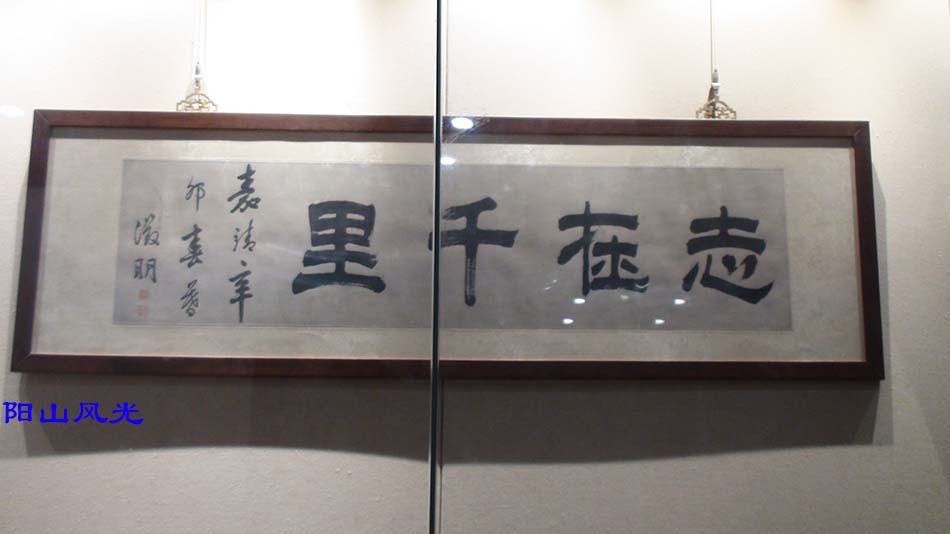 志在千里
嘉靖辛
卯春暮
徵明
阳山风光